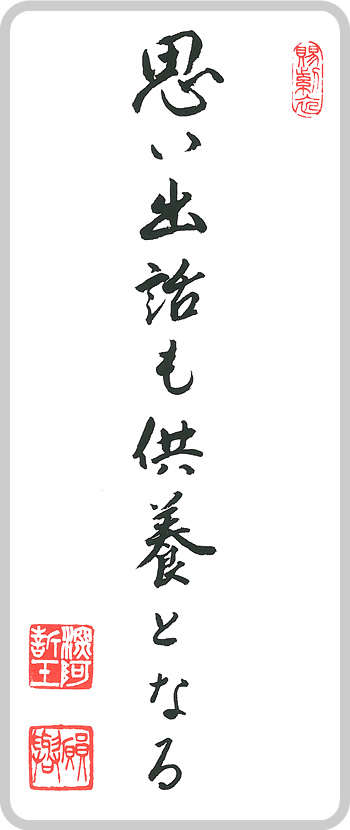 思い出話も供養となる